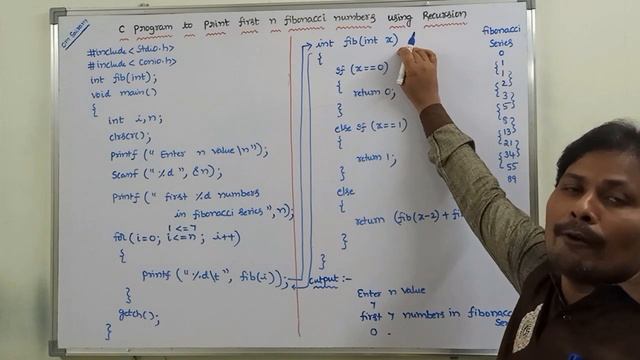 C Program to Print first n fibonacci numbers using Recursion
Om Sairam
#include< Stdio.h>
#include< Conio.h>
int fib(int);
void main()
{
int i,n;
clrscr();
printf(" Enter n value \n");
Scanf(" %d", &n);
printf(" first %d numbers
in fibonacci series",n);
1<=7
for(i=0; i<=n; i++)
{
printf("%d\t", fib(i));
}
getch();
}
int fib(int x)
{
if (x==0)
{
return 0;
}
else if (x==1)
{
return 1;
}
else
{
return (fib(x-2) + fi
}
}
output:-
Enter n value
7
first 7 numbers in fibonacci
Series
0
fibonacci
Series
0
1
1
2
3
5
8
13
21
34
55
89